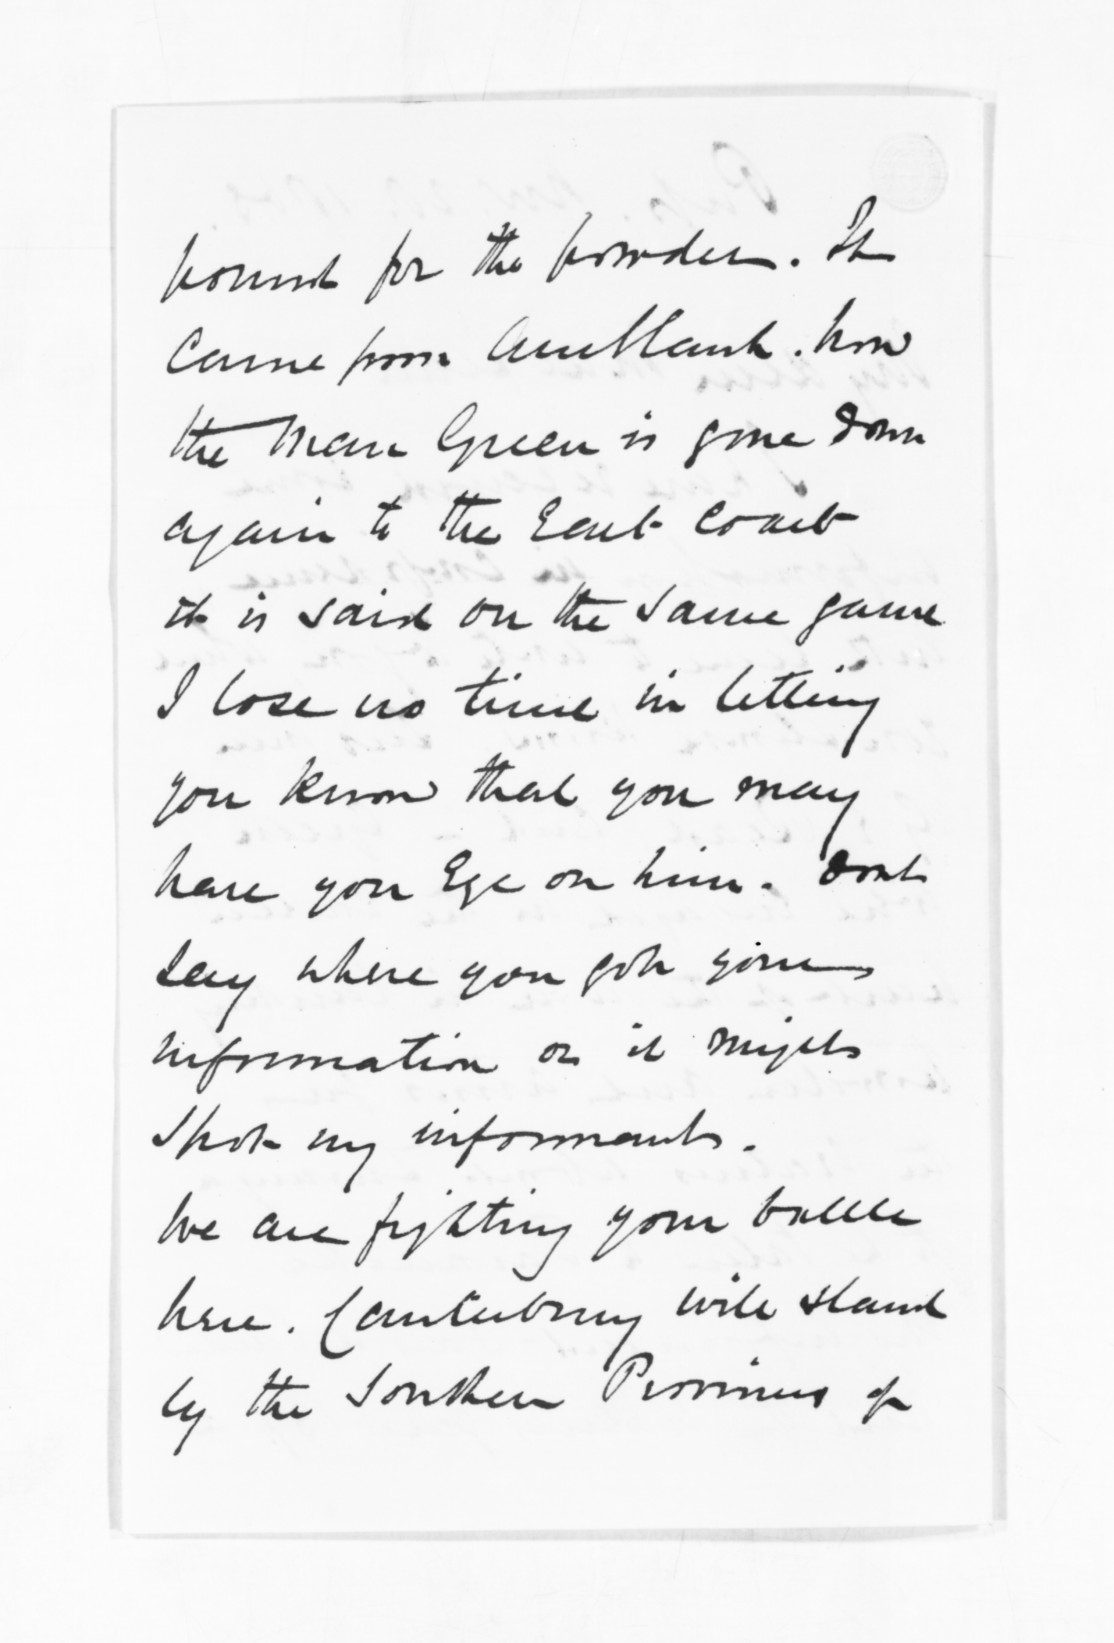 pound for the powder. It
came from Auckland. Now
the man Green is gone down
again to the East Coast
it is said on the same game
I lose no time in letting
you know that you may
have your Eye on him. Dont
say where you got your
information or it might
spot my informants.
We are fighting your battle
here. Canterbury will stand
by the Southern Provinces of